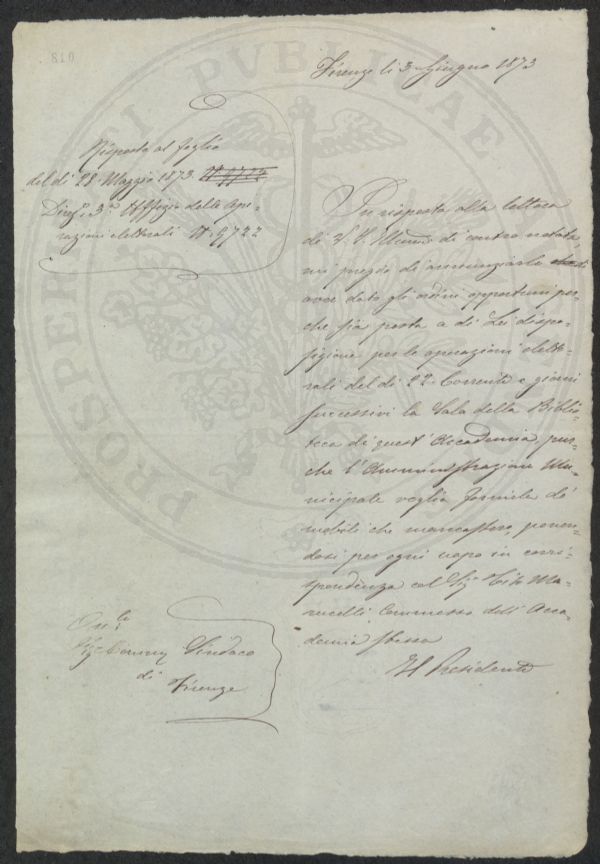 Firenze li 3 Giugno 1873
Risposta al foglio
del dì 28 Maggio 1873 N. 9722
Direz. 3ª Uffizio delle ope-
razioni elettorali N. 9722
In risposta alla lettera
di V. S. Illma di contro notata,
mi pregio di annunziarle
aver dato gli ordini opportuni per-
che sia posta a di Lei dispo-
sizione per le operazioni eletto-
rali del dì 22 Corrente e giorni
successivi la Sala della Biblio-
teca di quest'Accademia, pur-
che l'Amministrazione Mu-
nicipale voglia fornirla de'
mobili che mancassero, ponen-
dosi per ogni uopo in corri-
spondenza col Sig. Tito Ma-
rucelli Commesso dell'Acca-
demia stessa
Il Presidente
Sig. Sindaco
di
Firenze
PROSPERITATI PVBLICAE